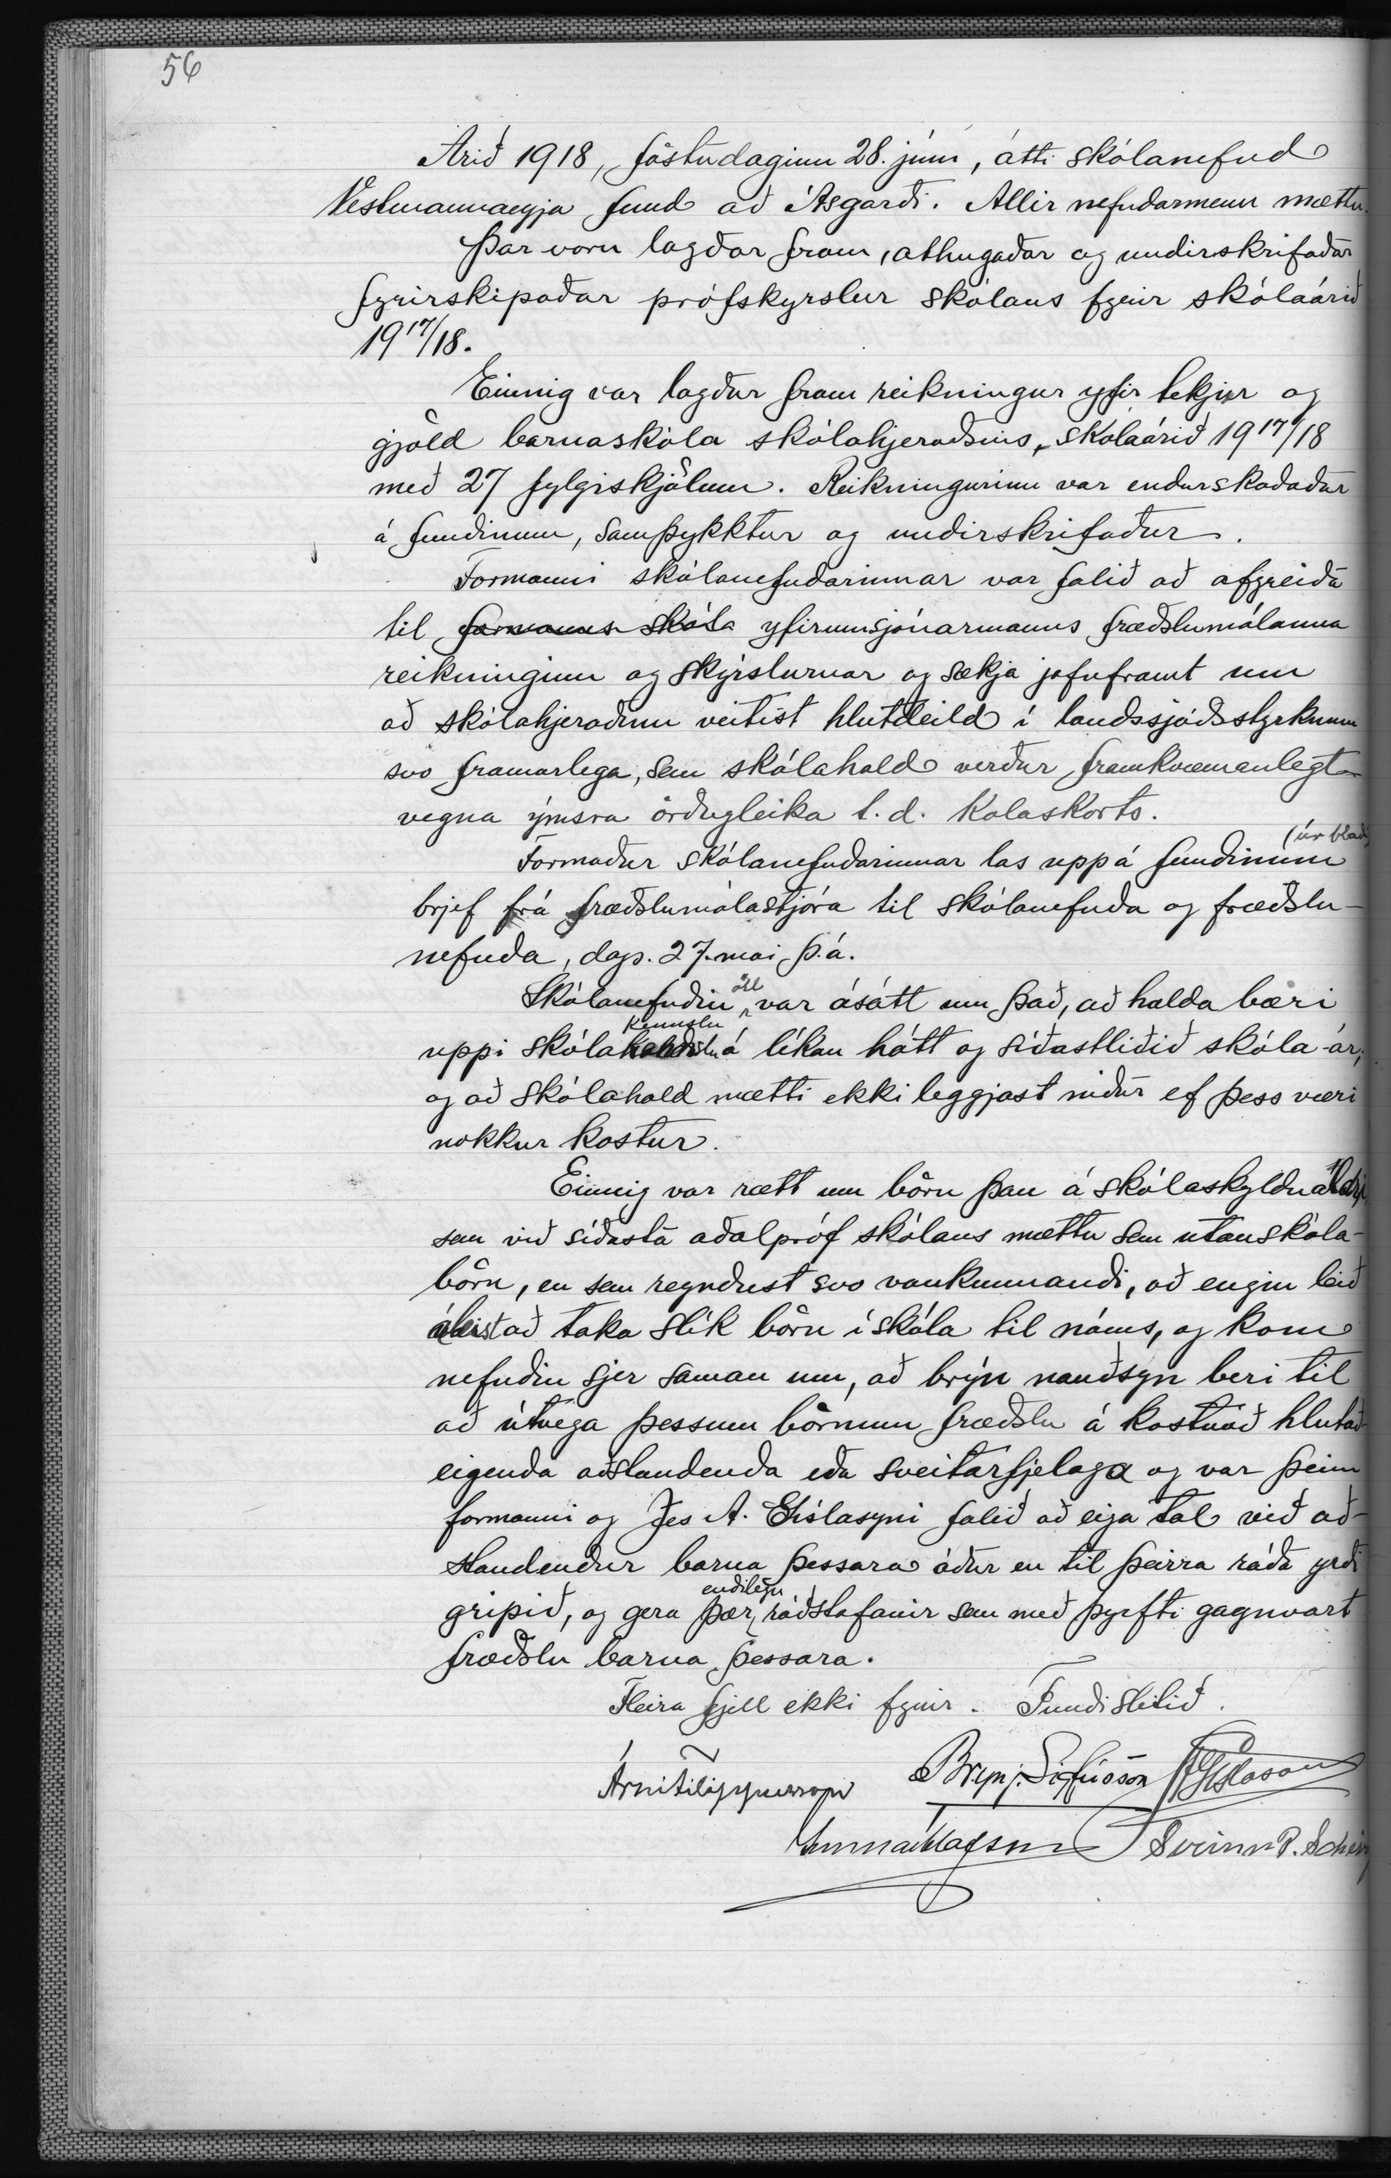 56
Árið 1918, föstudaginn 28. júní, átti skólanefnd
Vestmannaeyja fund að Ásgarði. Allir nefndarmenn mættu.
Þar voru lagðar fram, athugaðar og undirskrifaðar
fyrirskipaðar prófskyrslur skólans fyrir skólaárið
1917/18.
Einnig var lagður fram reikningur yfir tekjur og
gjöld barnaskóla skólahjeraðsins, skólaárið 1917/18
með 27 fylgiskjölum. Reikningurinn var endurskoðaður
á fundinum, samþykktur og undirskrifaður.
Formanni skólanefndarinnar var falið að afgreiða
til formanns skóla yfirumsjónarmanns fræðslumálanna
reikninginn og skýrslurnar og sækja jafnframt um
að skólahjeraðinu veitist hlutdeild í landssjóðsstyrknum
svo framarlega, sem skólahald verður framkvæmanlegt
vegna ýmsra örðugleika t.d. Kolaskorts.
Formaður skólanefndarinnar las upp á fundinum (úr blaði)
brjef frá fræðslumálastjóra til skólanefnda og fræðslu-
nefnda, dags. 27. mai þ.á.
Skólanefndin öll var ásátt um það, að halda bæri
uppi skólakennslu á líkan hátt og síðastliðið skóla-ár,
og að skólahald mætti ekki leggjast niður ef þess væri
nokkur kostur.
Einnig var rætt um börn þau á skólaskyldualdri
sem við síðasta aðalpróf skólans mættu sem utanskóla-
börn, en sem reyndust svo vankunnandi, að engin leið
áleist að taka slík börn í skóla til náms, og kom
nefndin sjer saman um, að brýn nauðsyn beri til
að útvega þessum börnum fræðslu á kostnað hlutað-
eigenda aðstandenda eða sveitarfjelaga og var þeim
formanni og Jes A. Gíslasyni falið að eiga tal við að-
standendur barna þessara áður en til þeirra ráða yrði
gripið, og gera þær endilegu ráðstafanir sem með þyrfti gagnvart
fræðslu barna þessara.
Fleira fjell ekki fyrir. Fundi slitið.
Árni Filippusson Brynj. Sigfússon JGíslason
Gunnar Ólafsson Sveinn P. Schev